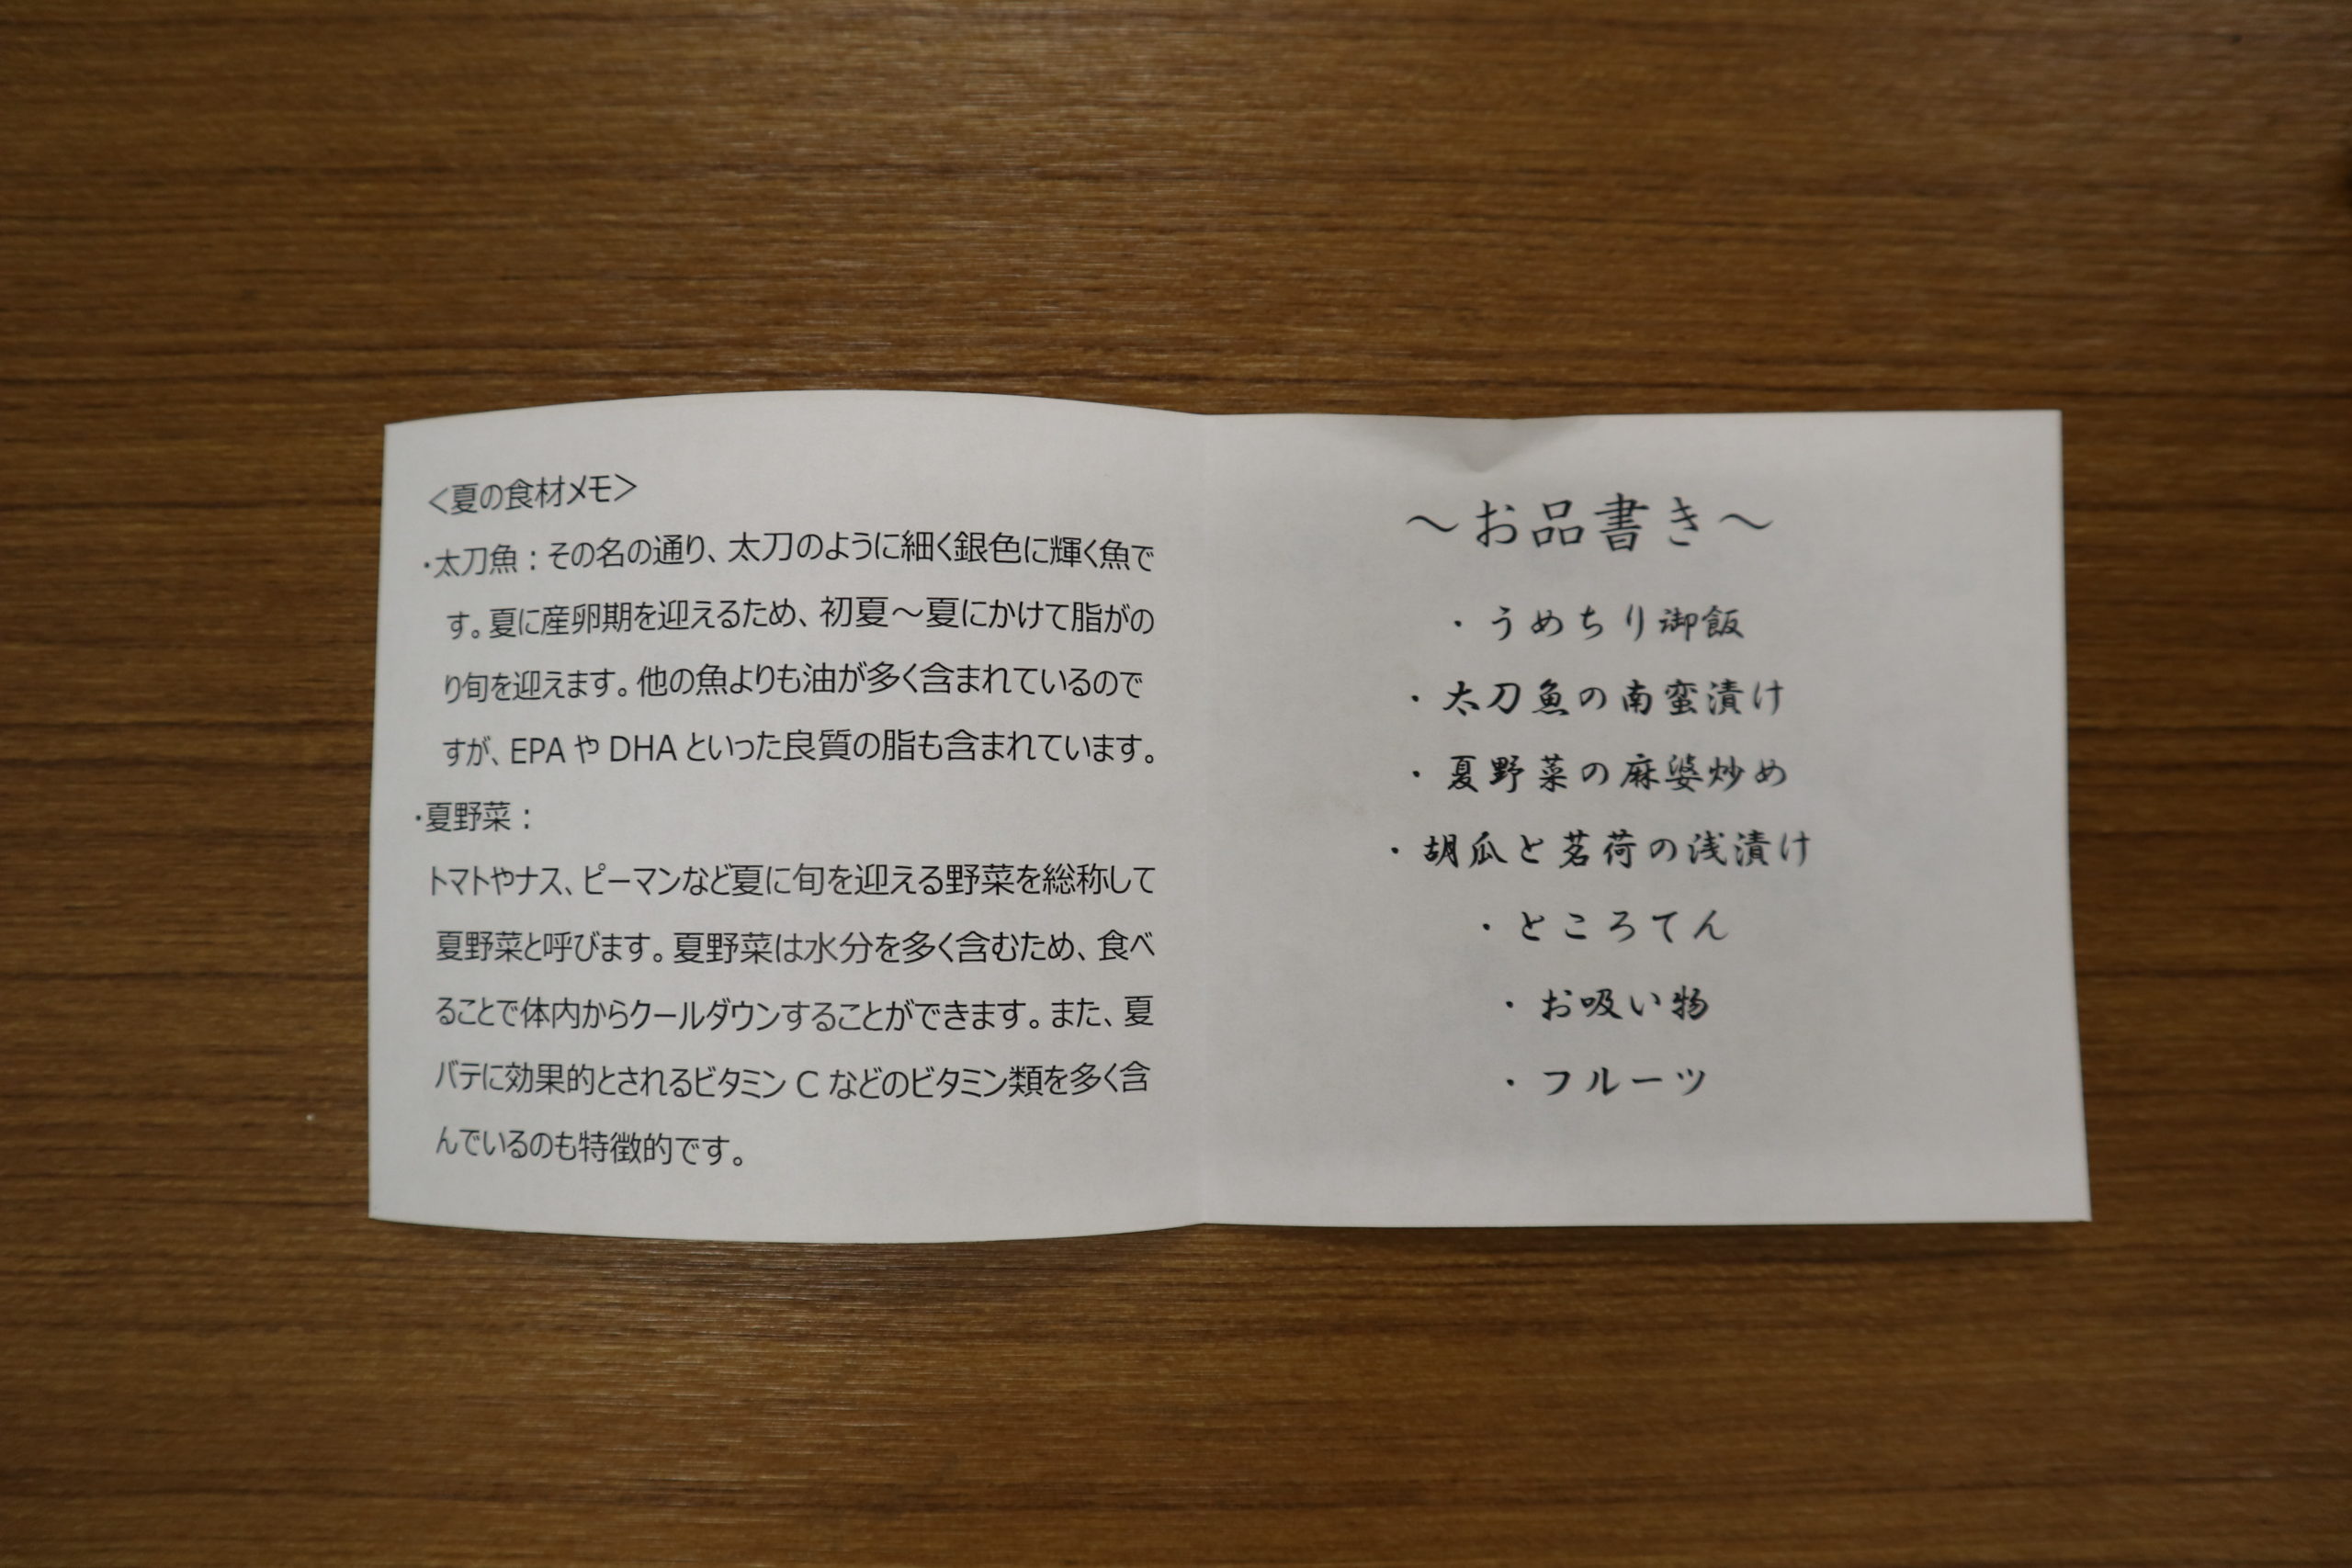 ＜夏の食材メモ＞
・太刀魚：その名の通り、太刀のように細く銀色に輝く魚で
す。夏に産卵期を迎えるため、初夏～夏にかけて脂がの
り旬を迎えます。他の魚よりも油が多く含まれているので
すが、EPA や DHA といった良質の脂も含まれています。
・夏野菜：
トマトやナス、ピーマンなど夏に旬を迎える野菜を総称して
夏野菜と呼びます。夏野菜は水分を多く含むため、食べ
ることで体内からクールダウンすることができます。また、夏
バテに効果的とされるビタミン C などのビタミン類を多く含
んでいるのも特徴的です。
～お品書き～
・うめちり御飯
・太刀魚の南蛮漬け
・夏野菜の麻婆炒め
・胡瓜と茗荷の浅漬け
・ところてん
・お吸い物
・フルーツ